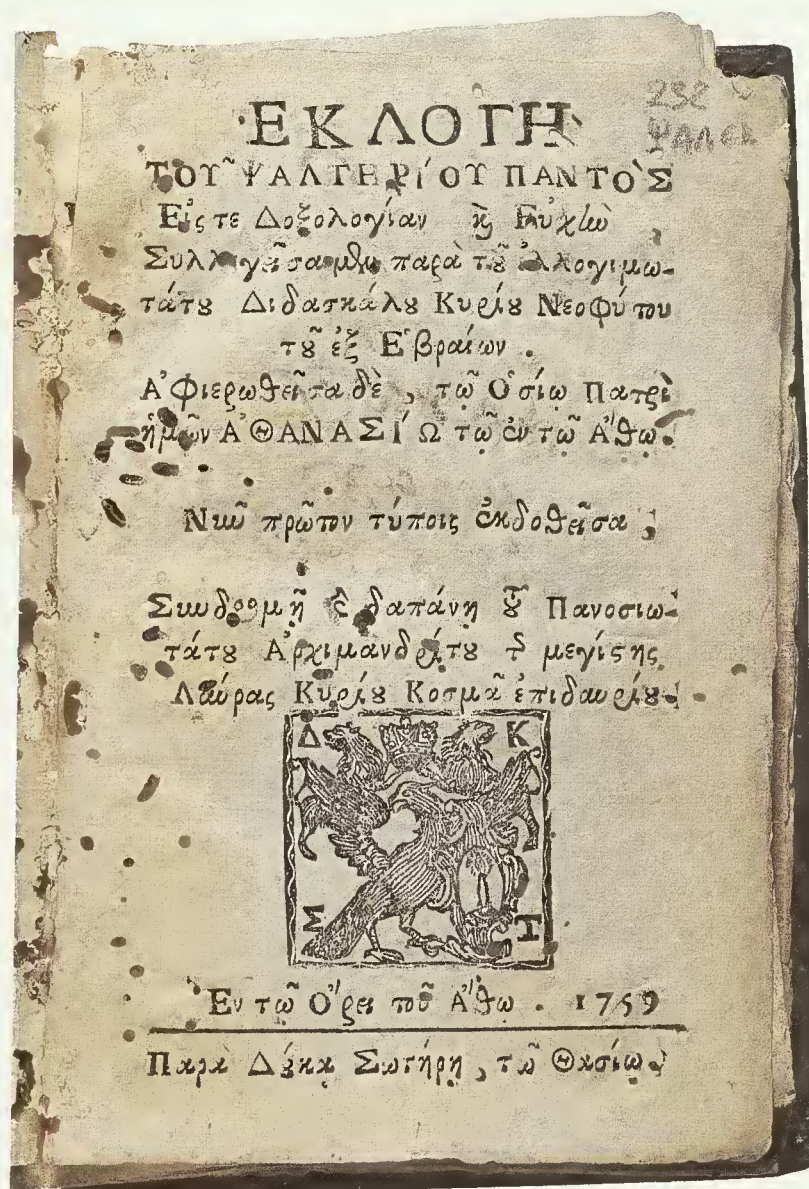 ἘΚΛΟΓῊ
ΤΟΥ͂ ΨΑΛΤΗΡΊΟΥ ΠΑΝΤῸΣ
Εἴς τε Δοξολογίαν κὶ Εὐχὴν
Συλλεγεῖσα μὲν παρὰ τοῦ ἐλλογιμω-
τάτου Διδασκάλου Κυρίου Νεοφύτου
τοῦ ἐξ Ἑβραίων .
Ἀφιερωθεῖσα δὲ , τῷ Ὁσίῳ Πατρὶ
ἡμῶν ἈΘΑΝΑΣΊΩ τῷ ἐν τῷ Ἄθῳ .
Νῦν πρῶτον τύποις ἐκδοθεῖσα ,
Συνδρομῇ καὶ δαπάνῃ τοῦ Πανοσιω-
τάτου Ἀρχιμανδρίτου τῆς μεγίστης
Λαύρας Κυρίου Κοσμᾶ ἐπιδαυρίου .
Δ Κ
Μ Τ
Ἐν τῷ Ὄρει τοῦ Ἄθω . 1759
Παρὰ Δούκᾳ Σωτήρῃ , τῷ Θασίῳ .